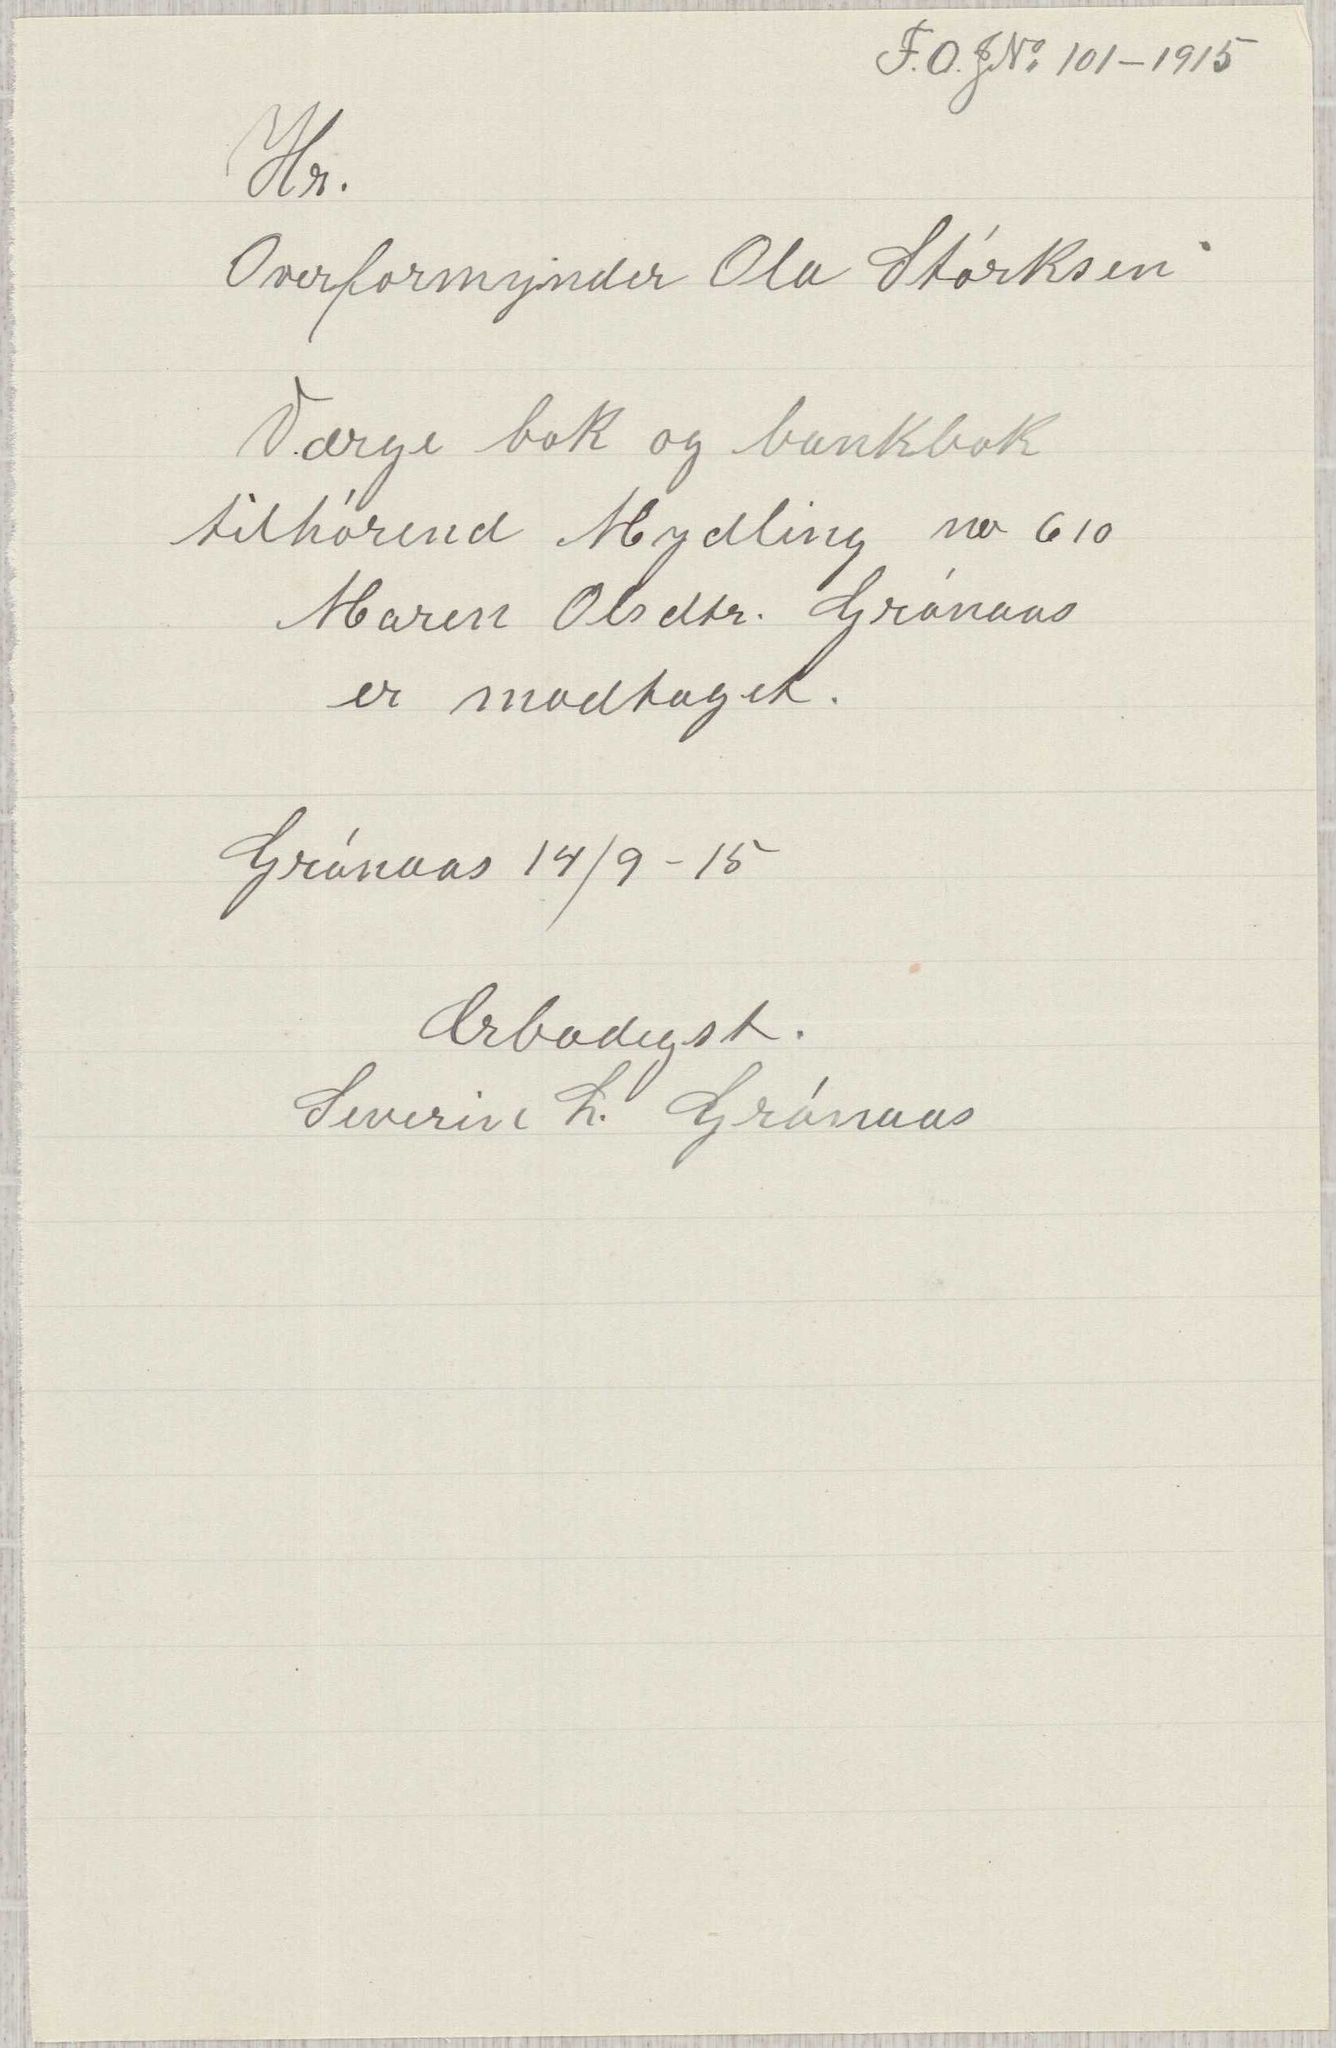 F.O.J.No. 101-1915
Hr.
Overformynder Ola Störksen
Værge bok og bankbok
tilhörend Mydling no 610
Maren Olsdtr. Grönaas
er modtaget.
Grönaas 14/9-15
Ærbødigst.
Severin L. Grönaas